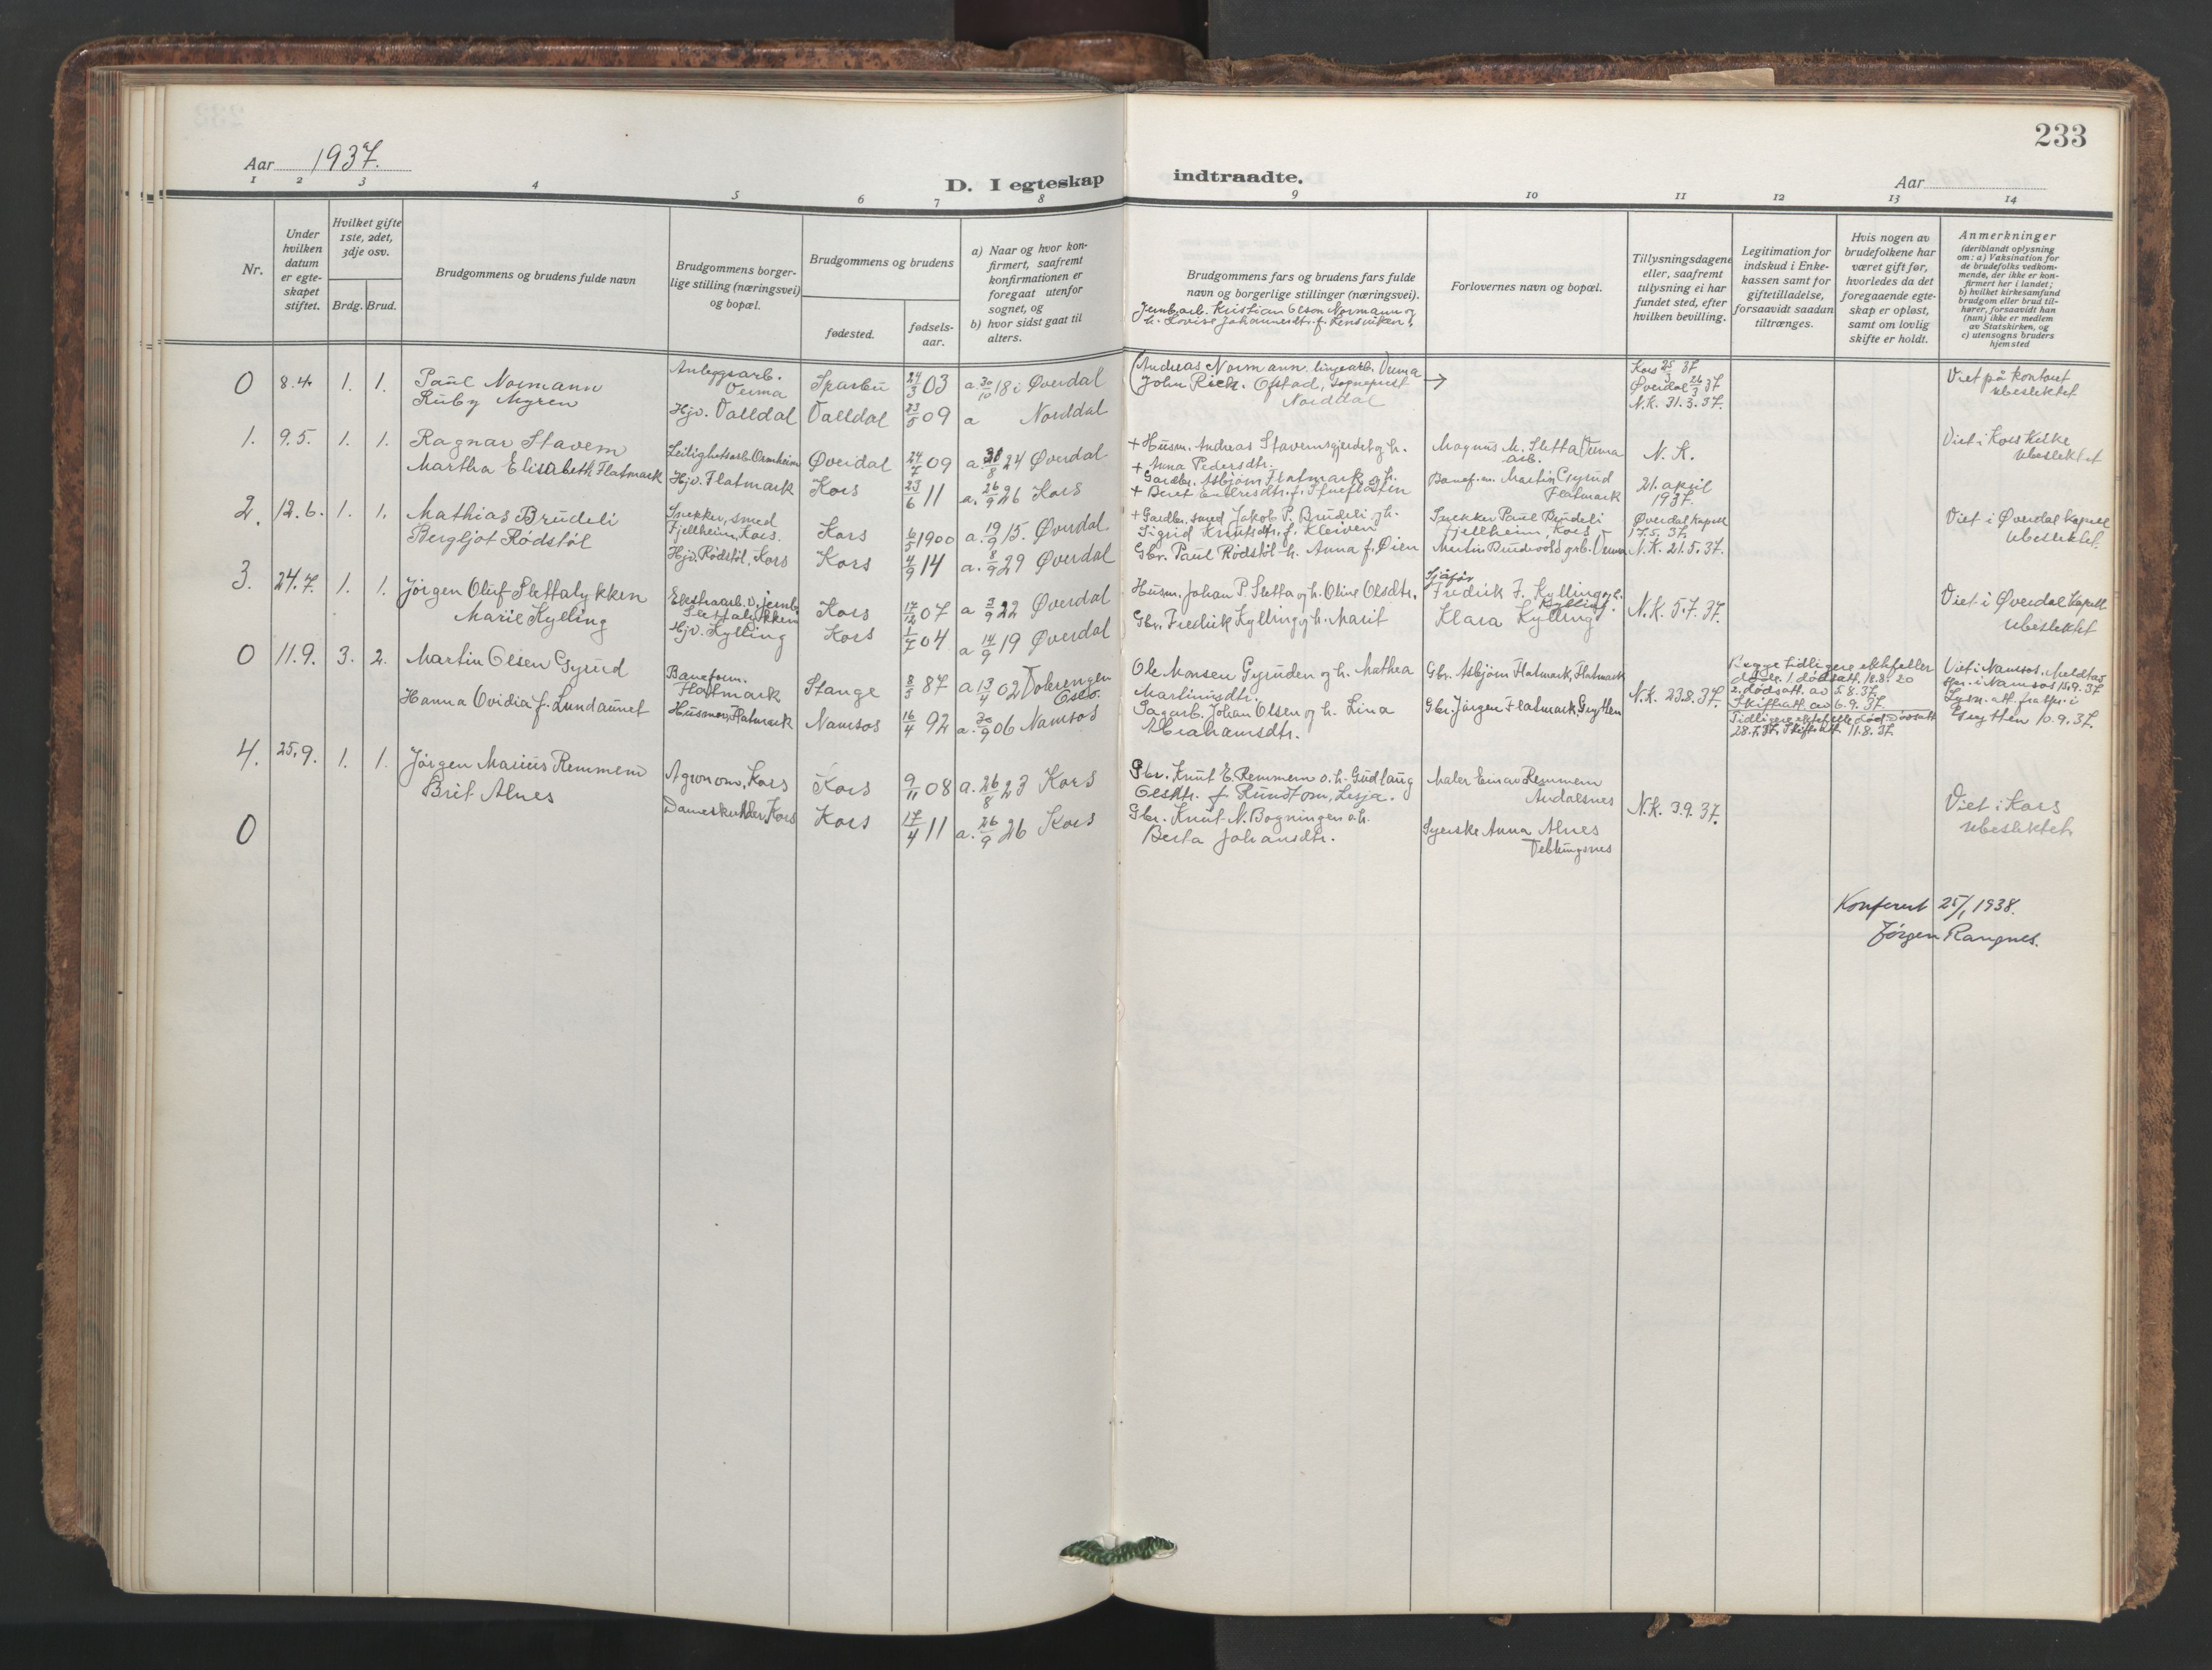 233
Aar 1937.
D. I egteskap indtraadte.
Aar
1 2 3 4 5 6 7 8 9 10 11 12 13 14
Nr.
Under hvilken datum er egteskapet stiftet.
Hvilket gifte 1ste, 2det, 3dje osv.
Brdg. Brud.
Brudgommens og brudens fulde navn
Brudgommens borgerlige stilling (næringsvei) og bopæl.
Brudgommens og brudens
fødested.
fødselsaar.
a) Naar og hvor konfirmert, saafremt konfirmationen er foregaat utenfor sognet, og
b) hvor sidst gaat til alters.
Brudgommens fars og brudens fars fulde navn og borgerlige stillinger (næringsvei).
Forlovernes navn og bopæl.
Tillysningsdagene eller, saafremt tillysning ei har fundet sted, efter hvilken bevilling.
Legitimation for indskud i Enkekassen samt for giftetilladelse, forsaavidt saadan tiltrænges.
Hvis nogen av brudefolkene har været gift før, hvorledes da det foregaaende egteskap er opløst, samt om lovlig skifte er holdt.
Anmerkninger
(deriblandt oplysning om: a) Vaksination for de brudefolks vedkommende, der ikke er konfirmert her i landet; b) hvilket kirkesamfund brudgom eller brud tilhører, forsaavidt han (hun) ikke er medlem av Statskirken, og c) utensogns bruders hjemsted
Jernb.arb. Kristian Olson Normann og
h. Lovise Johannesdtr. f.
0 8.4. 1. 1. Paul Normann Anleggsarb. Verma Sparbu 24/3 03 a. 30/10 18 i Øverdal
Andreas Normann, linjearb. Verma
Kors 25/3 37
Øverdal 26/3 37
N.K. 31.3.37.
Viet på kontoret
ubeslektet
Ruby Myren Hjv. Valldal Valldal 23/5 09 a Norddal
John Rich. Ofstad, sogneprest
Norddal
1. 9.5. 1. 1. Ragnar Stavem Leilighetsarb. Ormheim Øverdal 24/7 09 a. 31/8 24 Øverdal
+ Husm. Andreas Stavemsgjerdet og h.
+ Anna Pedersdtr.
Magnus M. Sletta Verma
arb.
N.K.
21. april
1937.
Viet i Kors Kirke
ubeslektet
Martha Elisabeth Flatmark Hjv. Flatmark Kors 23/6 11 a. 26/9 26 Kors
Gardbr. Asbjørn Flatmark og h.
+ Beret
Banef.m. Martin Gyrud
Flatmark
2. 12.6. 1. 1. Mathias Brudeli Snekker, smed Fjellheim, Kors. Kors 6/5 1900 a. 19/9 15. Øverdal
+ Gardbr. smed Jakob P. Brudeli og h.
Sigrid Knutsdtr. f. Kleiven
Snekker Paul Brudeli
Fjellheim, Kors
Øverdal Kapell
17.5.37.
N.K. 21.5.37.
Viet i Øverdal Kapell
ubeslektet.
Bergljot Rødstøl Hjv. Rødstøl, Kors Kors 4/9 14 a. 8/9 29 Øverdal
Gbr. Paul Rødstøl h. Anna f. Øien
Martin Brudevold grb. Verma
3. 24.7. 1. 1. Jørgen Oluf Slettalykken Ekstraarb. v. jernb. Slettalykken Kors 17/12 07 a 3/9 22 Øverdal
Husm. Johan P. Sletta og h. Oline Olsdtr.
Sjåfør
Fredrik F. Kylling og h.
Kylling.
N.K. 5.7.37.
Viet i Øverdal Kapell
ubeslektet
Marie Kylling Hjv. Kylling Kors 1/7 04 a 14/9 19 Øverdal
Gbr. Fredrik Kylling og h. Marit
Klara Kylling
0 11.9. 3. 2. Martin Olsen Gyrud Baneform. Flatmark Stange 8/5 87 a 13/4 02 Volerengen Oslo.
Ole Monsen Gyruden og h. Mathea
Martinusdtr.
Gbr. Asbjørn Flatmark, Flatmark
N.K. 23.8.37.
Begge tidligere ektefeller
døde. 1. dødsatt. 18.8.20
2. dødsatt. av 5.8.37.
Skifteatt. av 6.9.37.
Viet i Namsos. Meldt av
spr. i Namsos 15.9.37
Lysn. att. fra spr. i
Grytten 10.9.37.
Hanna Ovidia f. Lundaunet Husmor, Flatmark Namsos 16/4 92 a. 30/9 06 Namsos
Sagarb. Johan Olsen og h. Lina
Abrahamsdtr.
Gbr. Jørgen Flatmark Grytten
Tidligere ektefelle død. Dødsatt
28.7.37. Skifteatt. 11.8.37
4. 25.9. 1. 1. Jørgen Marius Remmem Agronom, Kors Kors 9/11 08 a. 26/8 23 Kors
Gbr. Knut E. Remmem o.h. Gudlaug
Olsdtr. f. Rundtom, Lesja.
Maler Einar Remmem
Åndalsnes
N.K. 3.9.37.
Viet i Kors
ubeslektet.
Brit Alnes Dameskredder, Kors Kors 17/4 11 a. 26/9 26 Kors
Gbr. Knut N. Bogningen o.h.
Berta Johansdtr.
Syerske Anna Alnes
Veblungsnes
0
Konferert 25/1 1938.
Jørgen Rangnes.